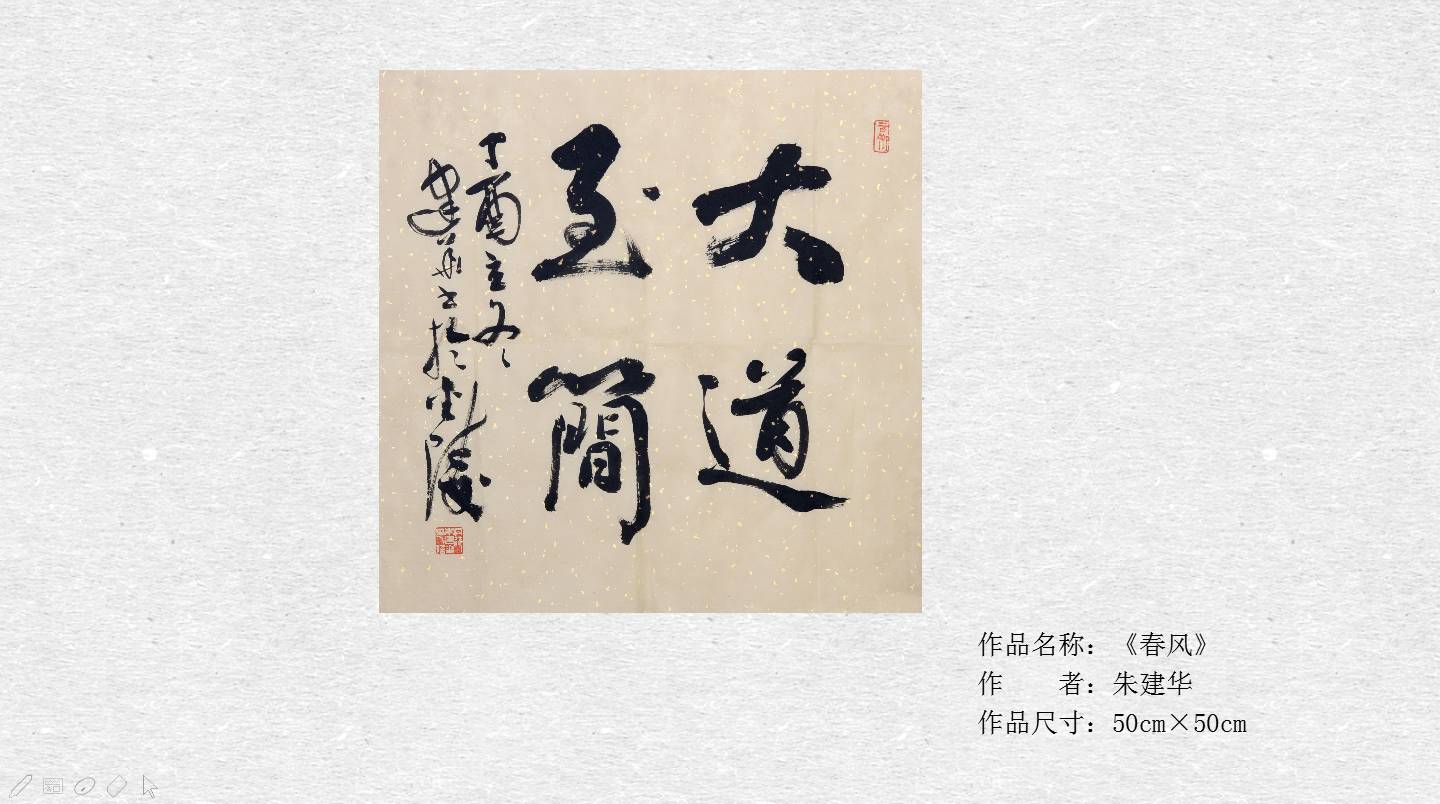 大道
至簡
丁酉立冬
建华书于金陵
作品名称：《春风》
作　　者：朱建华
作品尺寸：50cm×50cm